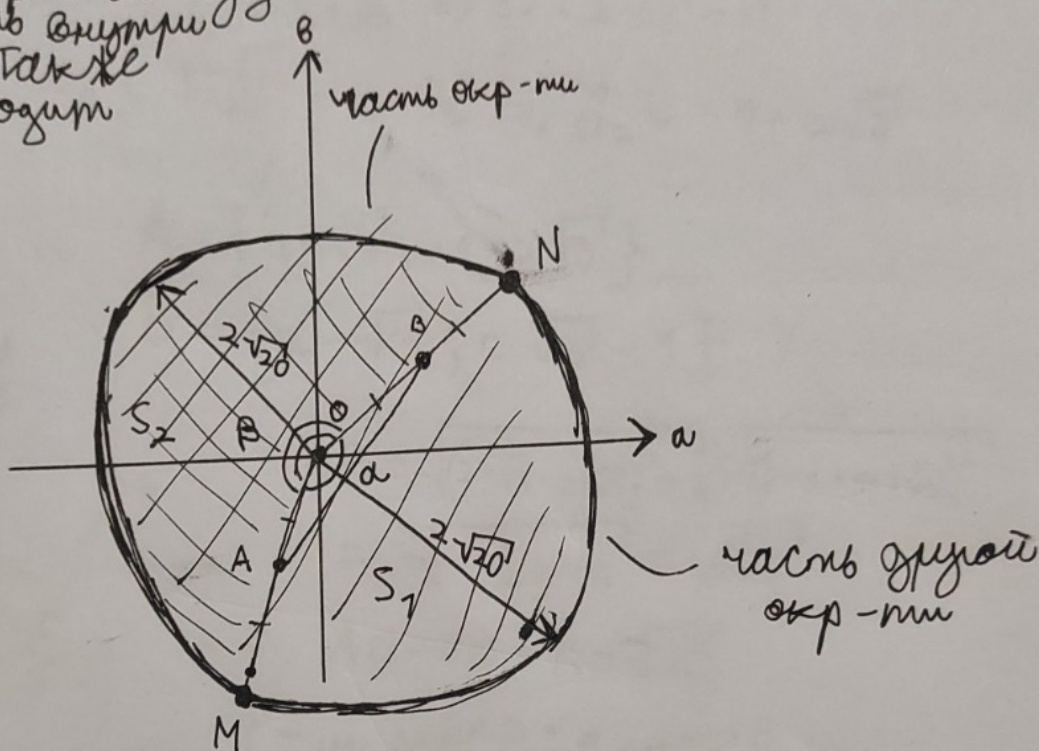 внутри
Также
в
часть окр-ти
N
B
2√20
S₂
β
O
a
α
A
2√20
S₁
часть другой
окр-ти
M